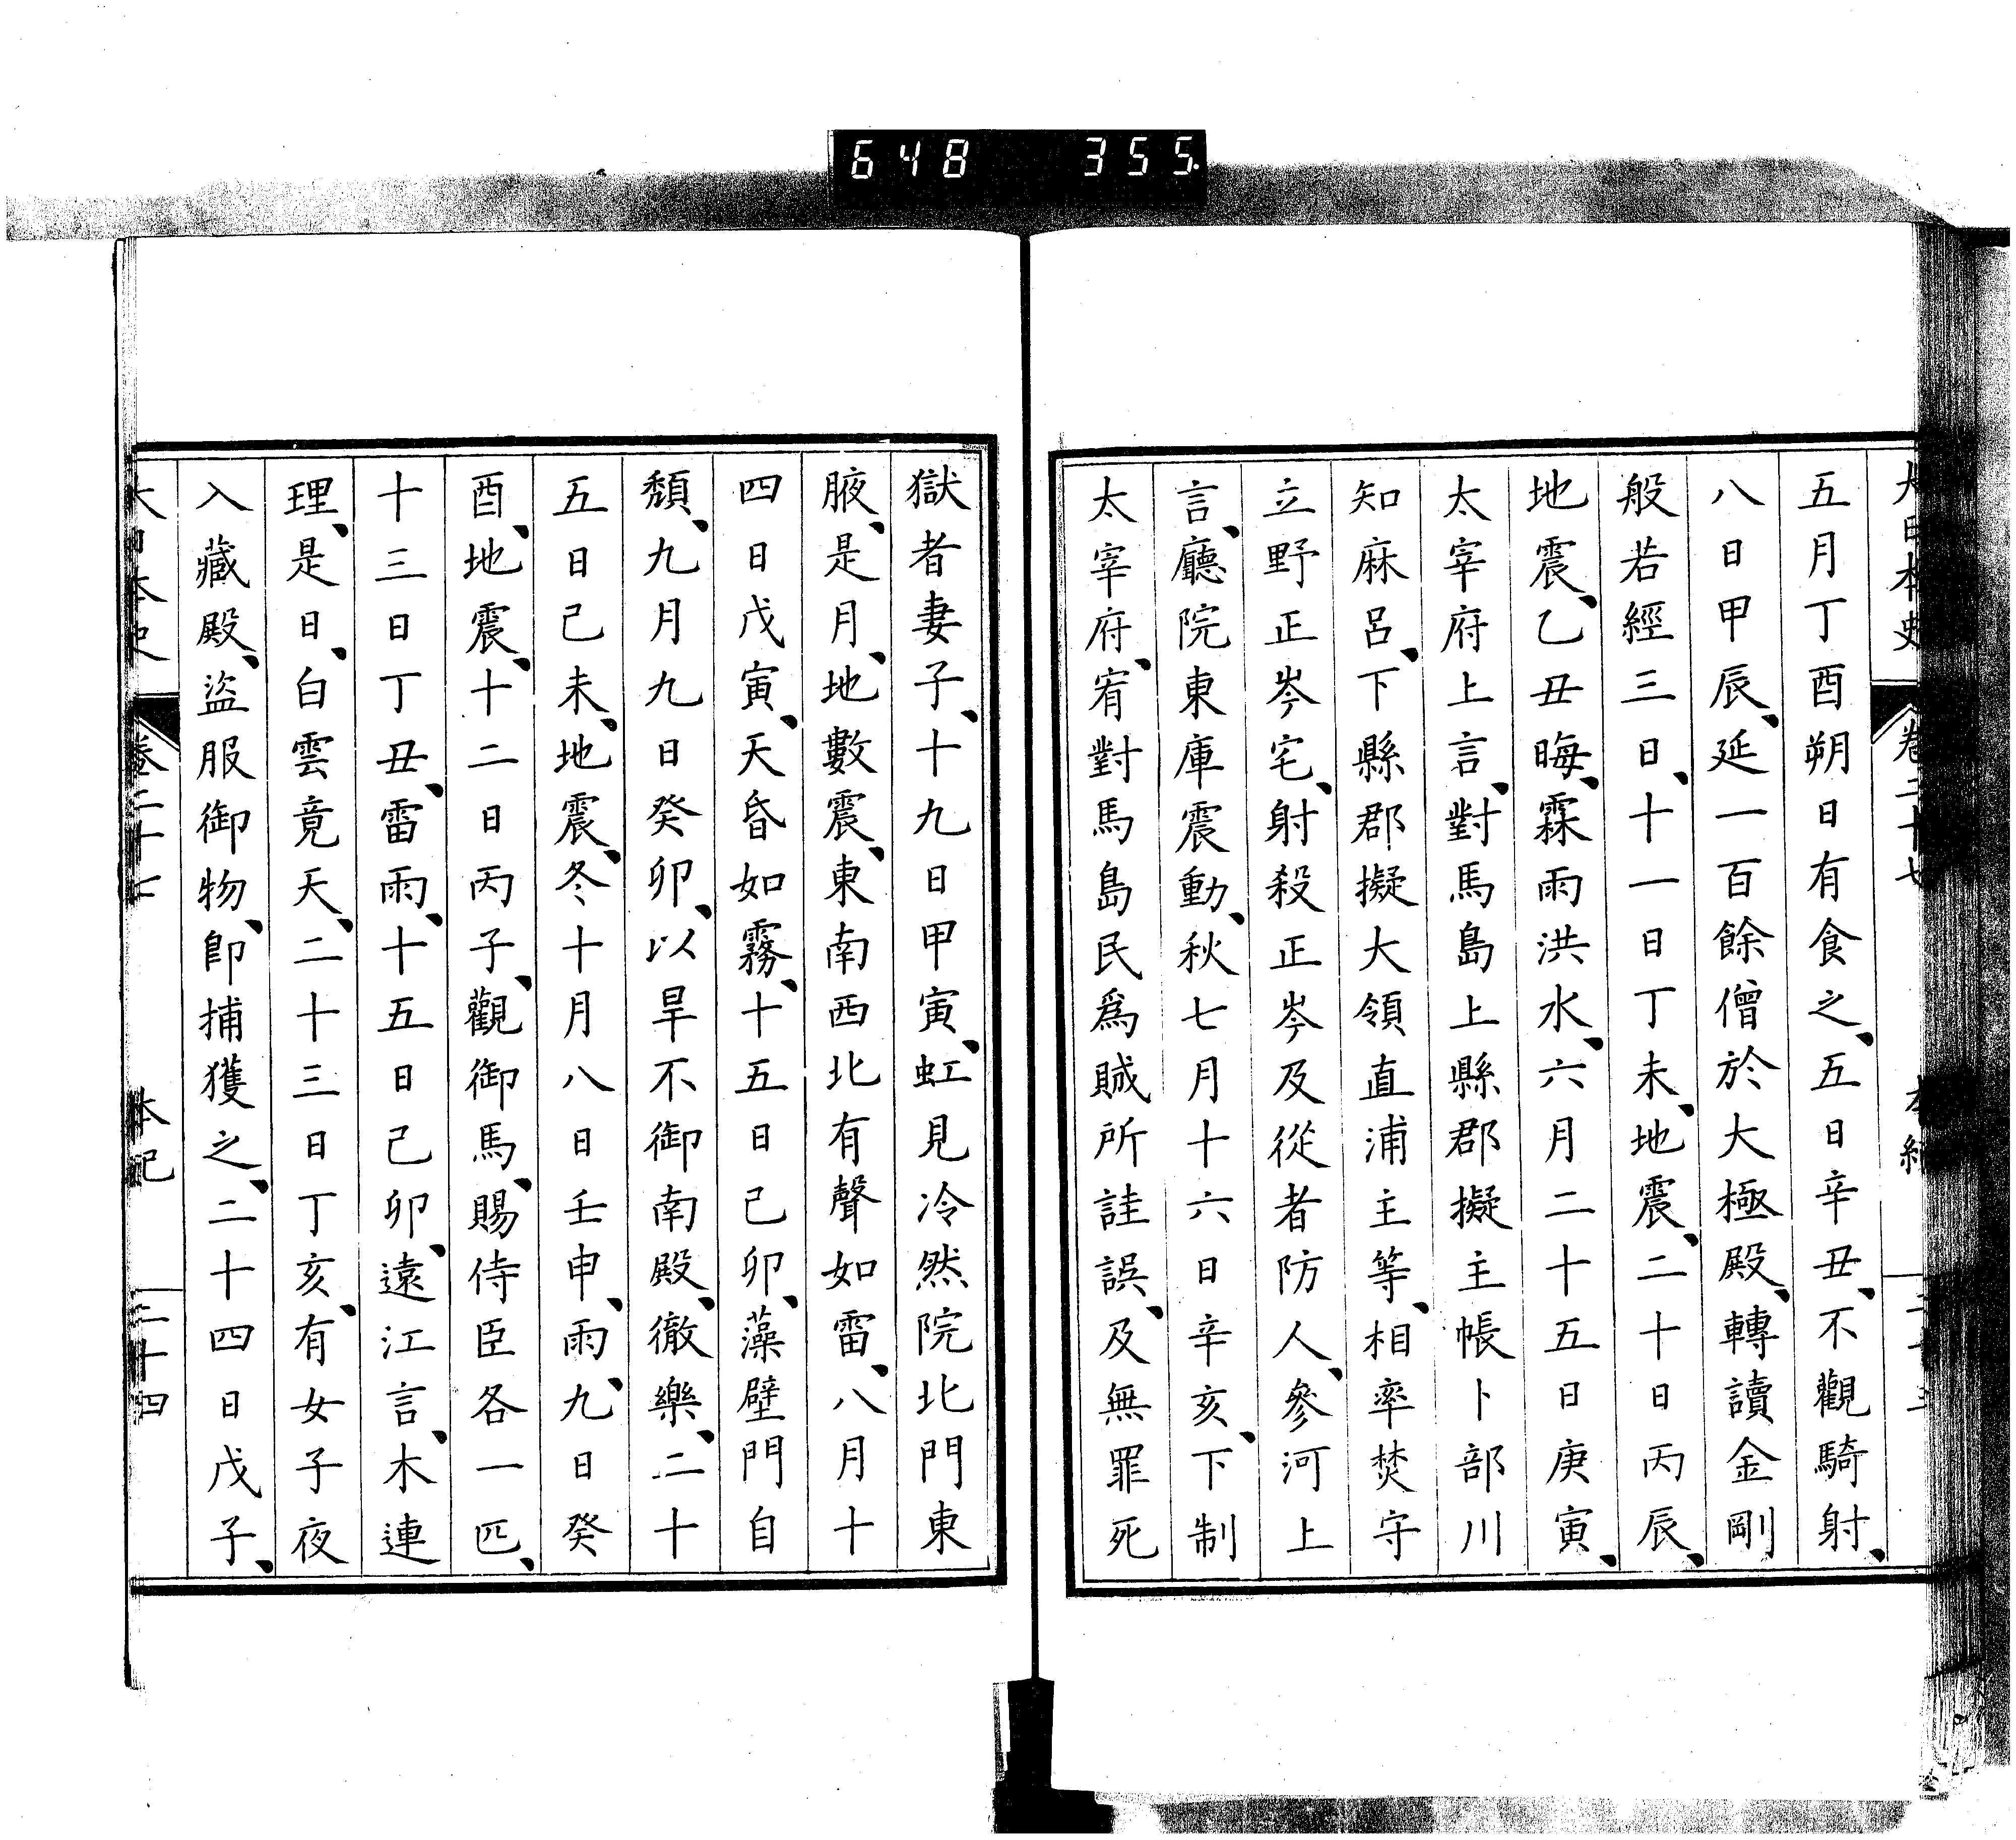 648 355.
大日本史 卷二十七 本紀
五月丁酉朔日有食之、五日辛丑、不觀騎射、
八日甲辰、延一百餘僧於大極殿、轉讀金剛
般若經三日、十一日丁未、地震、二十日丙辰、
地震、乙丑晦、霖雨洪水、六月二十五日庚寅、
太宰府上言、對馬島上縣郡擬主帳卜部川
知麻呂、下縣郡擬大領直浦主等、相率焚守
立野正岑宅、射殺正岑及從者防人、參河上
言、廳院東庫震動、秋七月十六日辛亥、下制
太宰府、宥對馬島民爲賊所詿誤、及無罪死
獄者妻子、十九日甲寅、虹見冷然院北門東
腋、是月、地數震、東南西北有聲如雷、八月十
四日戊寅、天昏如霧、十五日己卯、藻壁門自
頽、九月九日癸卯、以旱不御南殿、徹樂、二十
五日己未、地震、冬十月八日壬申、雨、九日癸
酉、地震、十二日丙子、觀御馬、賜侍臣各一匹、
十三日丁丑、雷雨、十五日己卯、遠江言、木連
理、是日、白雲竟天、二十三日丁亥、有女子夜
入藏殿、盜服御物、卽捕獲之、二十四日戊子、
大日本史 卷二十七 本紀 二十四